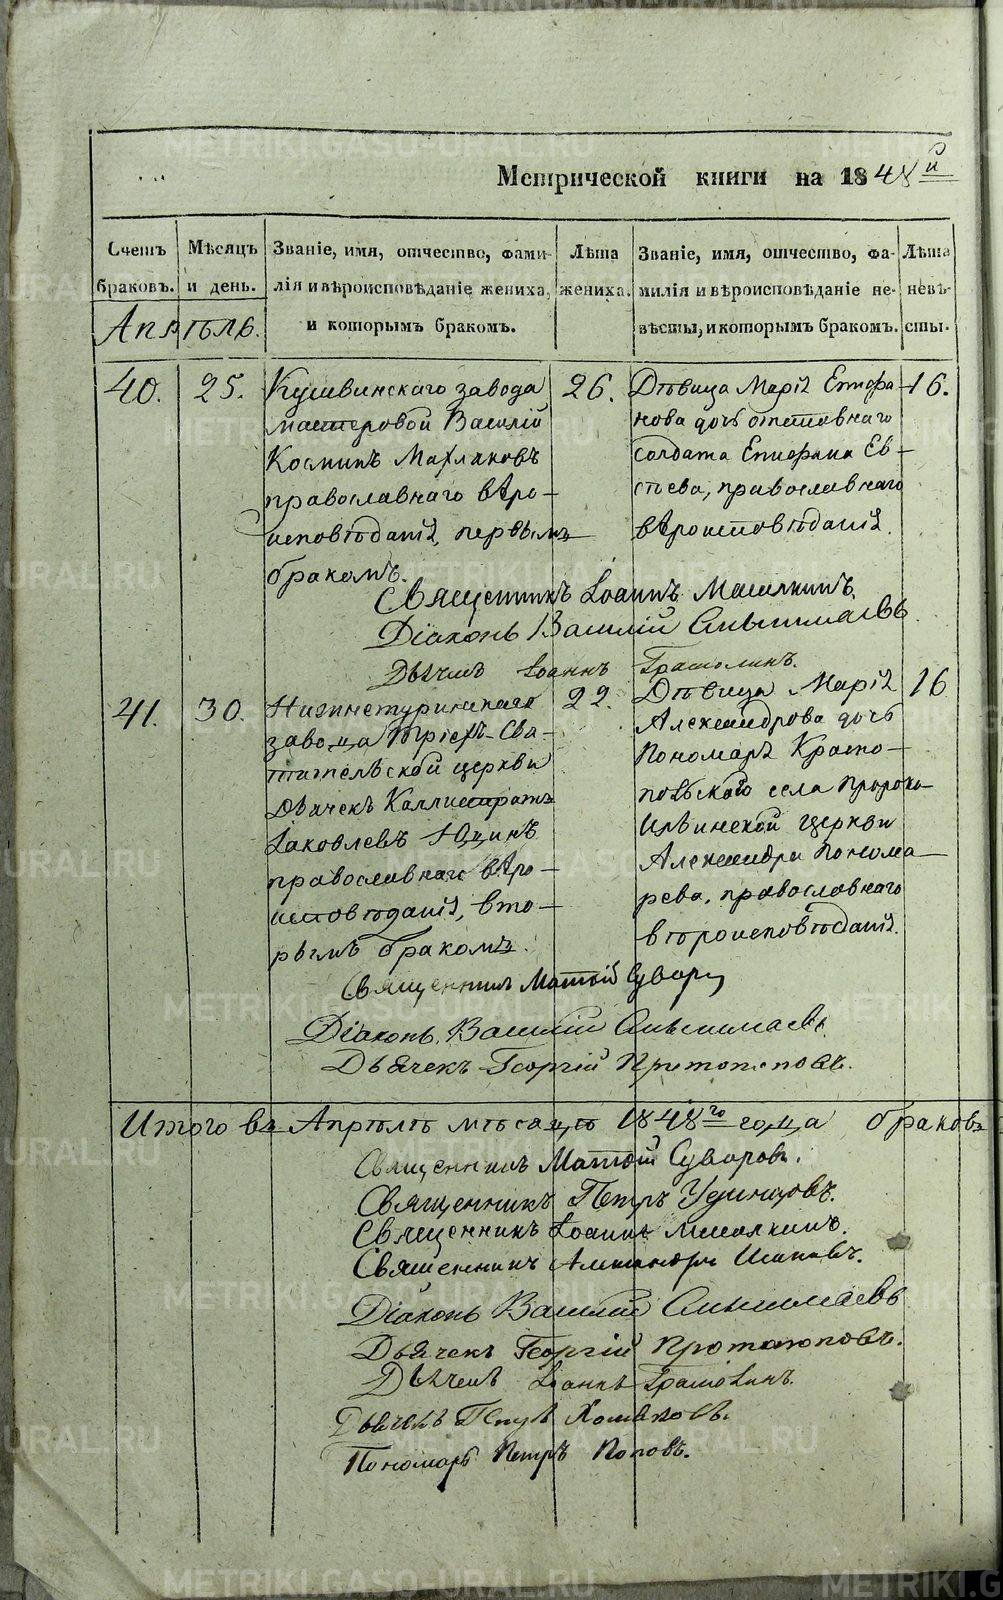 Метрической книги на 1848й
Счетъ браковъ.
Мѣсяцъ и день.
Званіе, имя, отчество, фами-
лія и вѣроисповѣданіе жениха,
и которымъ бракомъ.
Лѣта жениха.
Званіе, имя, отчество, фа-
милія и вѣроисповѣданіе не-
вѣсты, и которымъ бракомъ.
Лѣта невѣ-
сты.
Апрѣль.
40.
25.
Кушвинскаго завода
мастеровой Василій
Косминъ Махлаковъ
православнаго вѣро-
исповѣданія, первымъ
бракомъ.
26.
Дѣвица Марія Епифа-
нова дочь отставнаго
солдата Епифана Ев-
сѣева, православнаго
вѣроисповѣданія.
16.
Священникъ Іоаннъ
Діаконъ Василій
Дьячекъ Іоаннъ
41.
30.
Нижнетуринскаго
завода Трiехъ-Свя-
тительской церкви
Дьячекъ Каллистратъ
Іаковлевъ Юдинъ
православнаго вѣро-
исповѣданія, вто-
рымъ бракомъ.
22.
Дѣвица Марія
Александрова дочь
Пономаря Красно-
польскаго села Пророко-
Ильинской церкви
Александра Понома-
рева, православнаго
вѣроисповѣданія.
16
Священникъ Матѳій Суворов
Діаконъ Василій
Дьячекъ Георгій Протопоповъ.
Итого въ Апрѣлѣ мѣсяцѣ 1848го года браковъ
Священникъ Матѳій Суворовъ.
Священникъ Петръ Удинцовъ.
Священникъ Іоаннъ
Священникъ Александръ
Діаконъ Василій
Дьячекъ Георгій Протопоповъ.
Дьячекъ Іоаннъ
Дьячекъ
Пономарь Петръ Поповъ.
METRIKI.GASO-URAL.RU